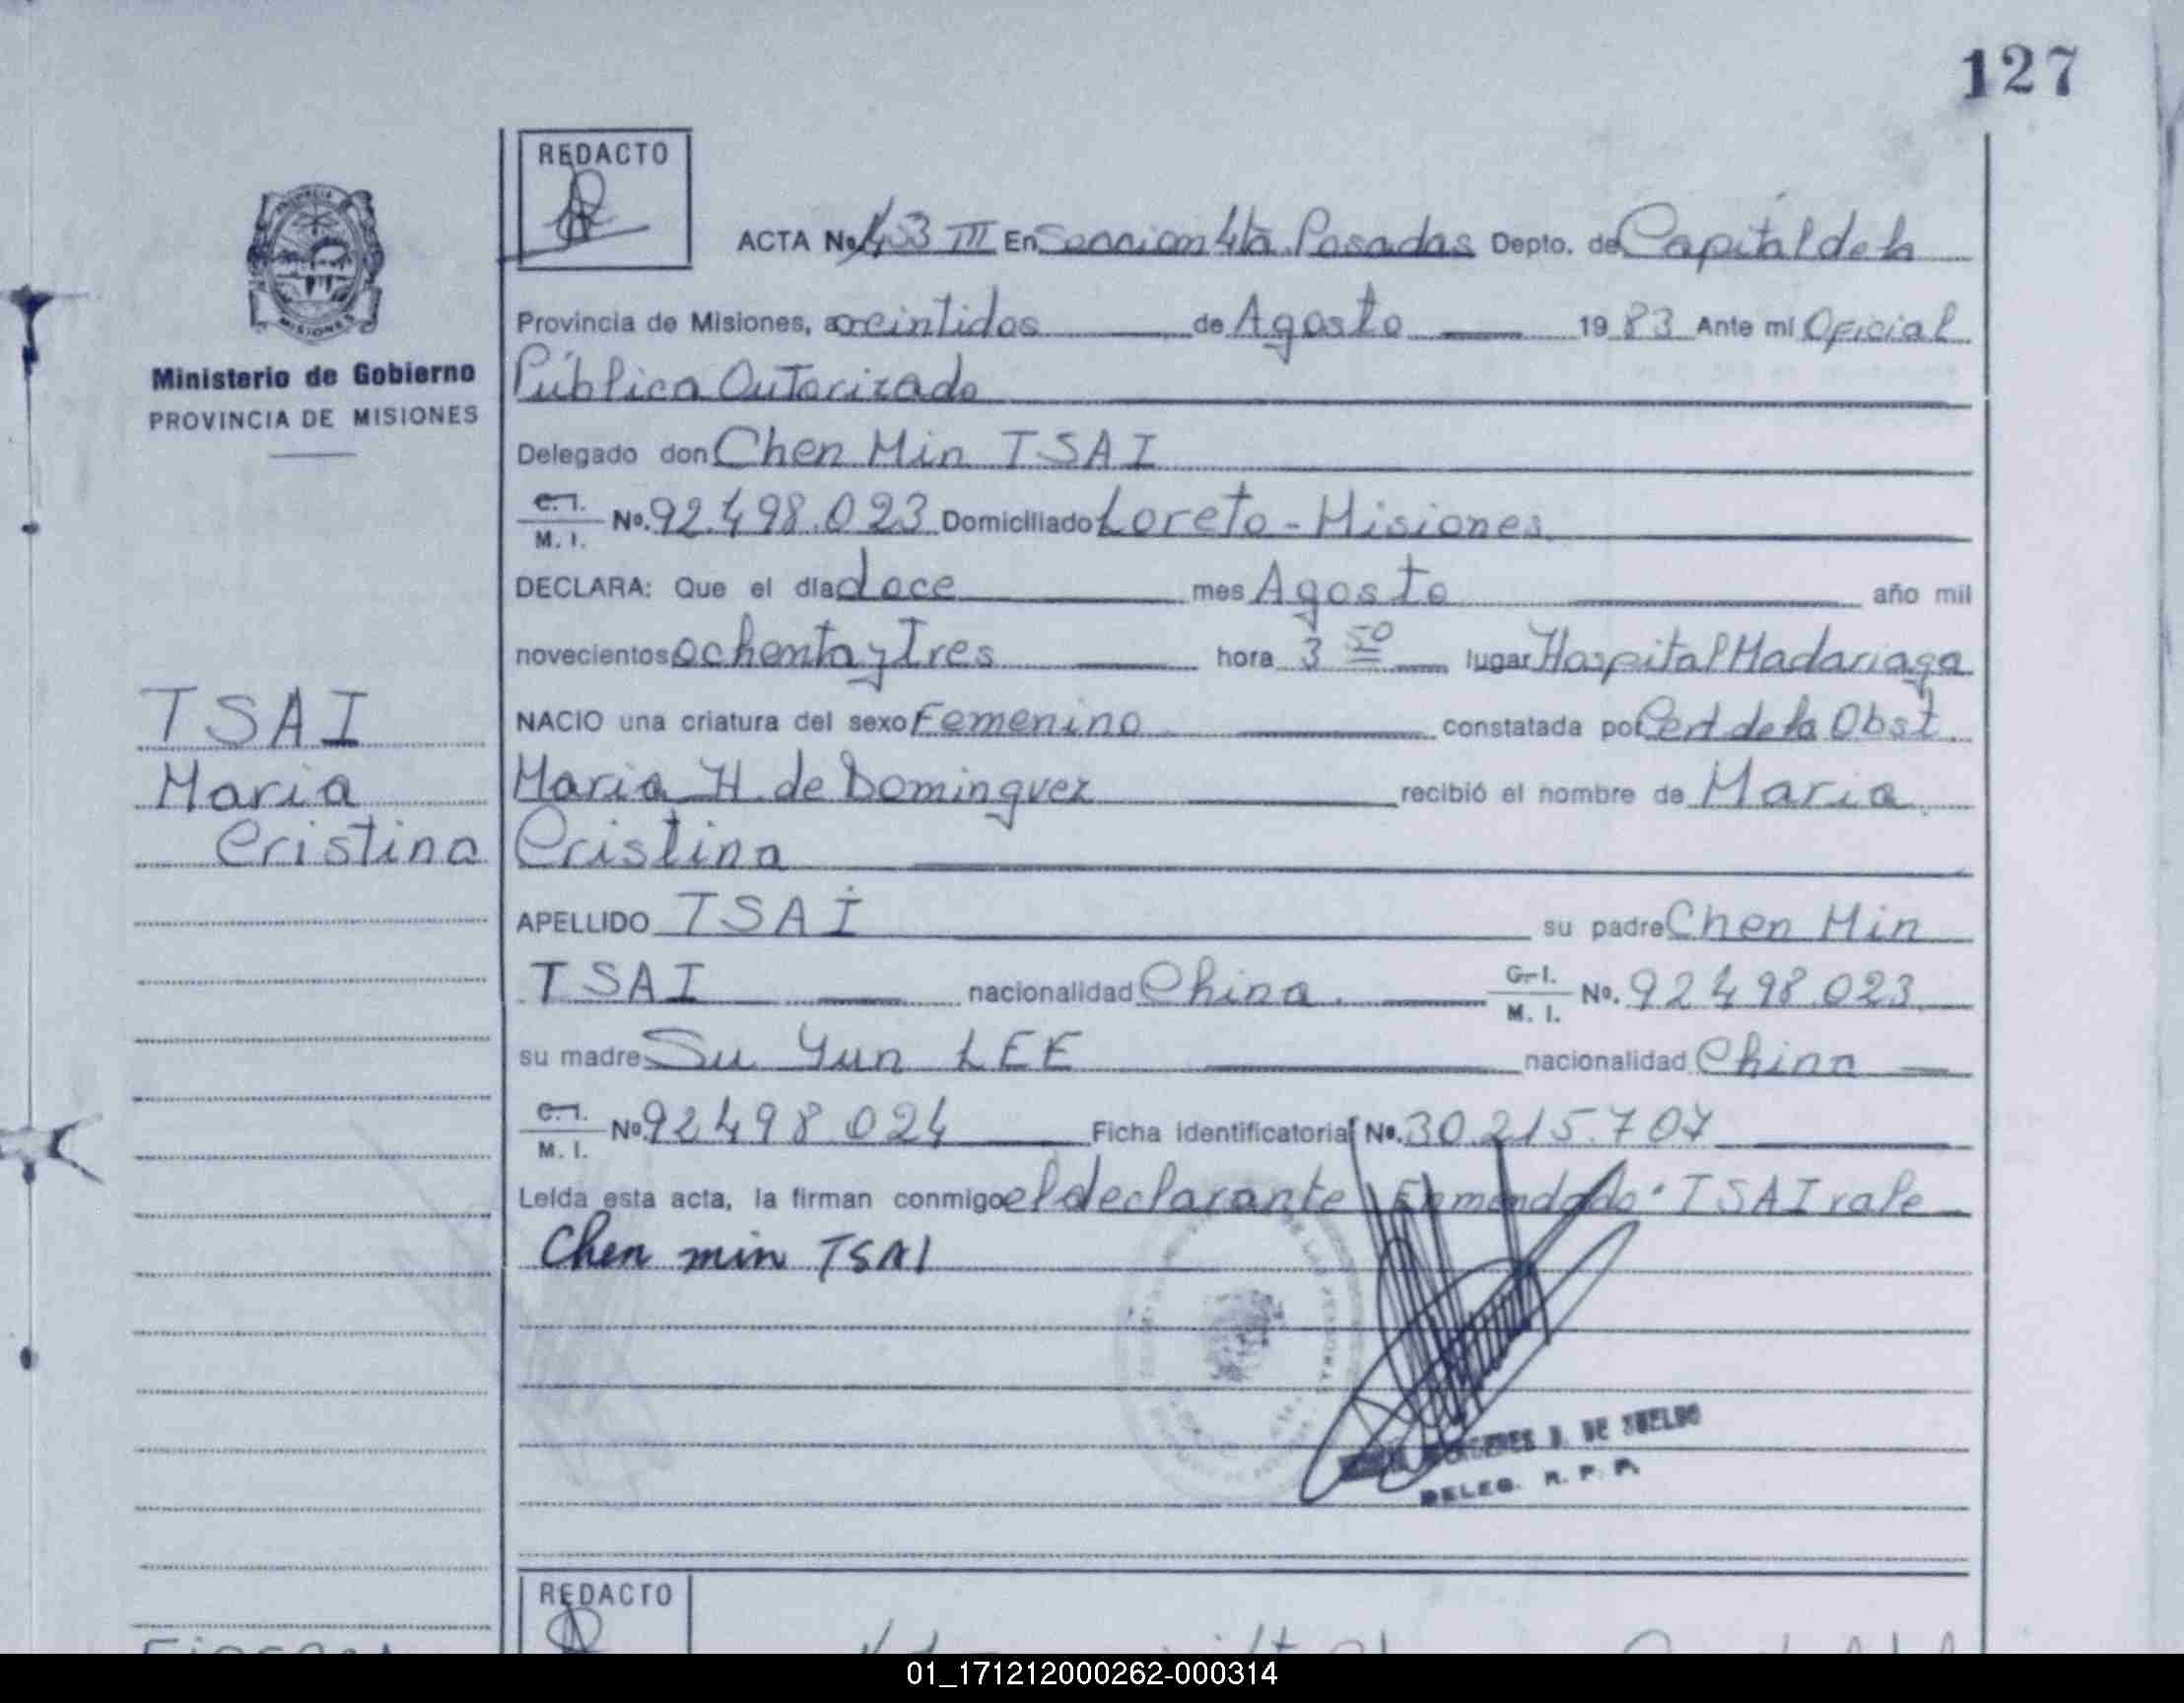 127
REDACTO
ACTA No 453 III En Seccion 4ta Posadas Depto. de Capital de la
Provincia de Misiones, a veintidos de Agosto 1983 Ante mi Oficial
Ministerio de Gobierno
PROVINCIA DE MISIONES
Público Autorizado
Delegado don Chen Min TSAI
C. I.
M. I. No. 92.498.023 Domiciliado Loreto - Misiones
DECLARA: Que el día doce mes Agosto año mil
novecientos ochenta y Tres hora 3 50 lugar Hospital Madariaga
TSAI
NACIO una criatura del sexo Femenino constatada por Cert de la Obst.
Maria
Maria H. de Dominguez recibió el nombre de Maria
Cristina
Cristina
APELLIDO TSAI su padre Chen Min
TSAI nacionalidad China C. I.
M. I. No. 92498.023
su madre Su Yun LEE nacionalidad China
C. I.
M. I. No 92498.024 Ficha identificatoria No. 30.215.707
Leída esta acta, la firman conmigo el declarante Enmendado · TSAI vale
Chen min TSAI
D. DE SUELDO
DELEG. R. P. P.
REDACTO
01_171212000262-000314